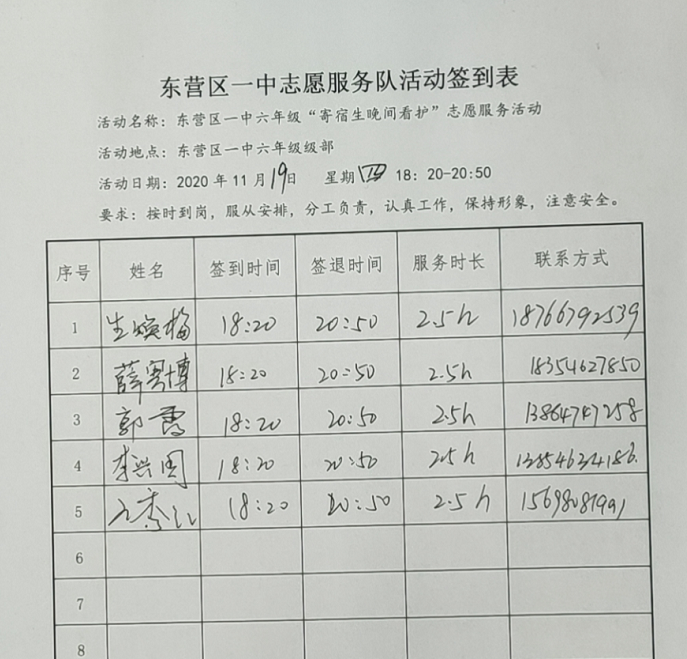 东营区一中志愿服务队活动签到表
活动名称：东营区一中六年级“寄宿生晚间看护”志愿服务活动
活动地点：东营区一中六年级级部
活动日期：2020年11月19日 星期四 18：20-20:50
要求：按时到岗，服从安排，分工负责，认真工作，保持形象，注意安全。
序号 姓名 签到时间 签退时间 服务时长 联系方式
1 生焕梅 18:20 20:50 2.5h 18766792539
2 薛 博 18:20 20:50 2.5h 18354627850
3 郭霞 18:20 20:50 2.5h 13864747258
4 李兴国 18:20 20:50 2.5h
5 18:20 20:50 2.5h
6
7
8